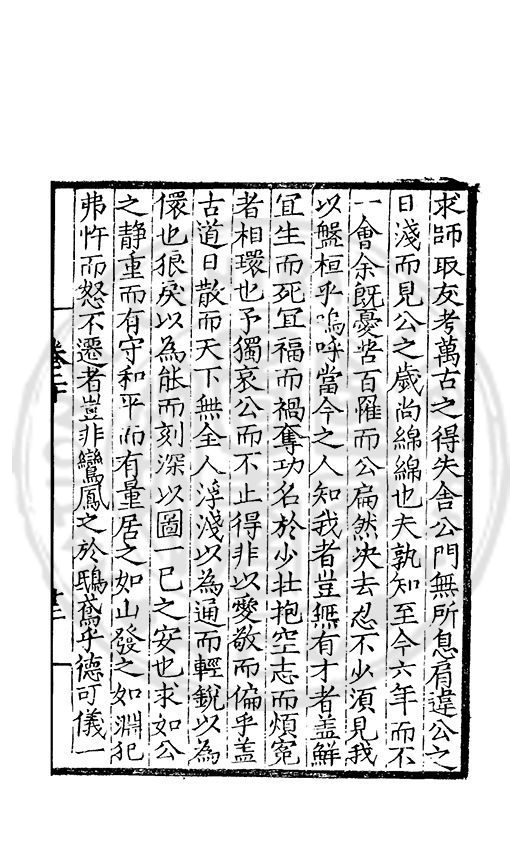 求師取友考萬古之得失舍公門無所息肩違公之
日淺而見公之歲尚綿綿也夫孰知至今六年而不
一會余既憂苦百罹而公扁然决去忍不少須見我
以盤桓乎嗚呼當今之人知我者豈無有才者盖鮮
冝生而死冝福而禍奪功名於少壯抱空志而煩寃
者相環也予獨哀公而不止得非以愛敬而偏乎盖
古道日散而天下無全人浮淺以為通而輕銳以為
儇也狼戾以為能而刻深以圖一已之安也求如公
之静重而有守和平而有量居之如山發之如淵犯
弗忤而怒不遷者豈非鸞鳳之於鴟鳶乎德可儀一
卷二十